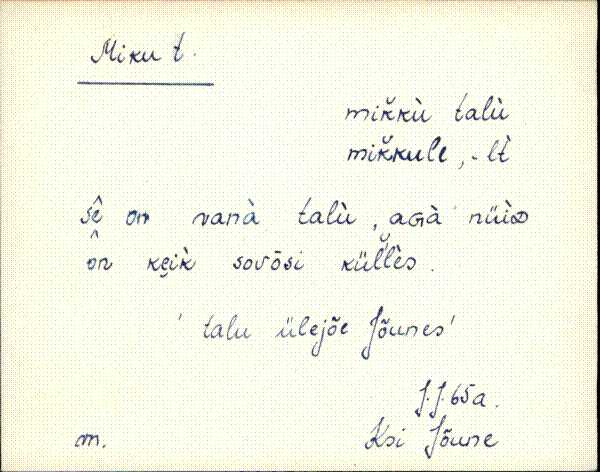 Miku t.
mik̆kù talù
mik̆kule, -lt̀
sê on vanà talù, aGà nüiD
ôn kęik̀ sovõsi kül̆lès.
' talu ülejõe Jõunes'
J.J. 65a.
m. Ksi Jõune